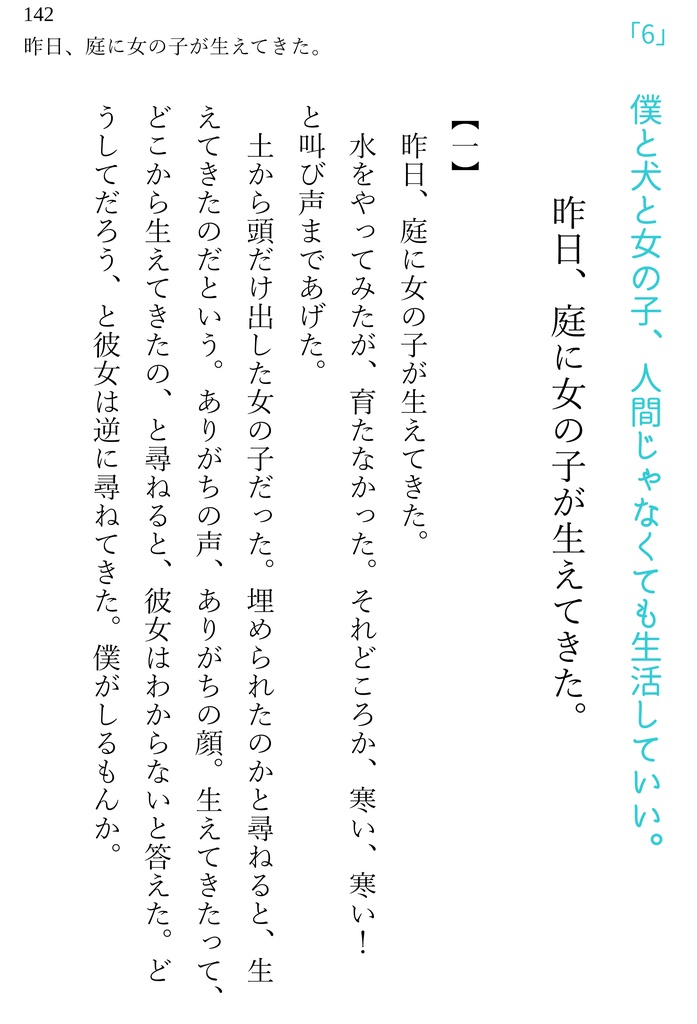 142
昨日、庭に女の子が生えてきた。
「6」 僕と犬と女の子、人間じゃなくても生活していい。
昨日、庭に女の子が生えてきた。
【一】
昨日、庭に女の子が生えてきた。
水をやってみたが、育たなかった。それどころか、寒い、寒い！
と叫び声まであげた。
土から頭だけ出した女の子だった。埋められたのかと尋ねると、生
えてきたのだという。ありがちの声、ありがちの顔。生えてきたって、
どこから生えてきたの、と尋ねると、彼女はわからないと答えた。ど
うしてだろう、と彼女は逆に尋ねてきた。僕がしるもんか。